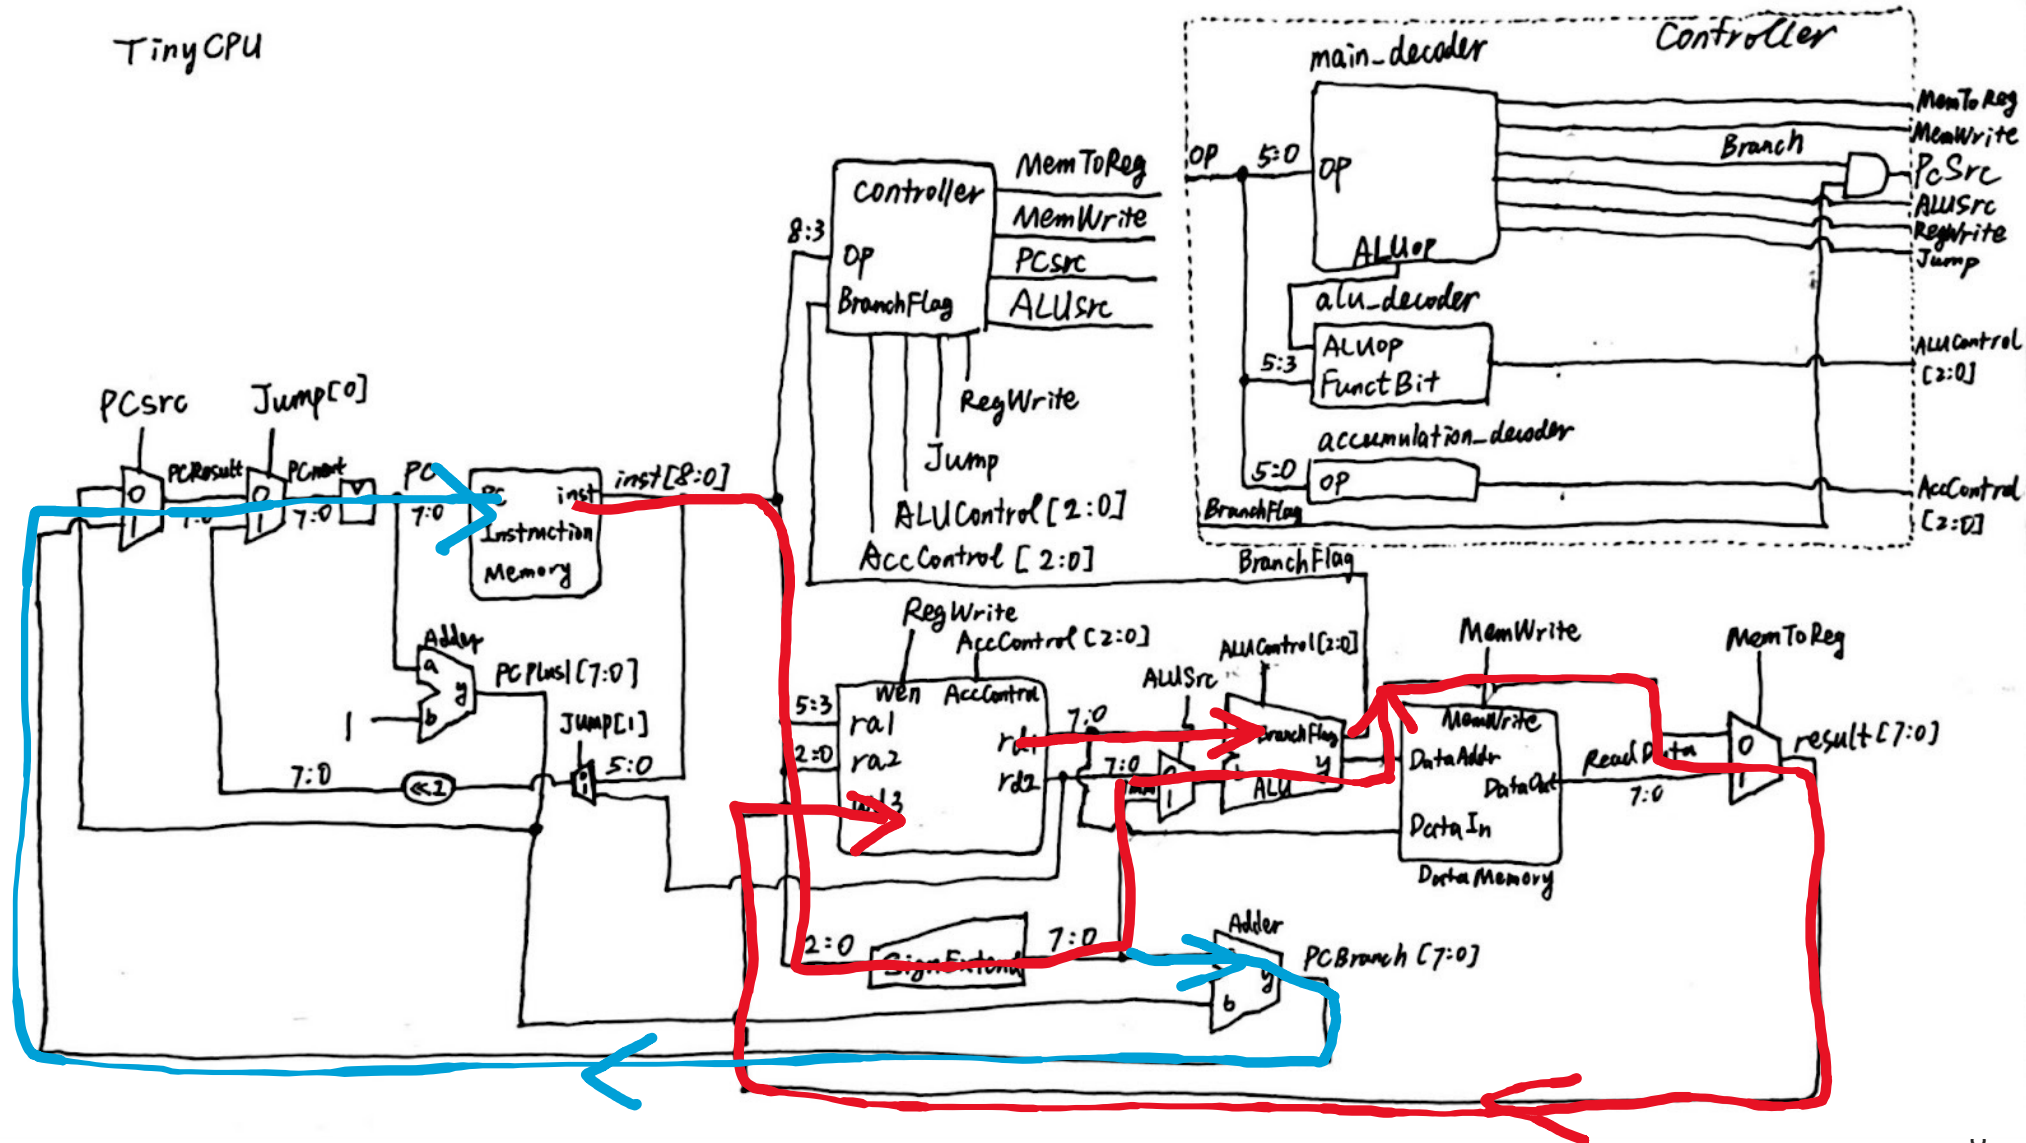 TinyCPU
Controller
main_decoder
MemToReg
MemWrite
Branch
PcSrc
ALUSrc
RegWrite
Jump
OP
5:0
OP
ALUop
alu_decoder
5:3
ALUop
FunctBit
ALUControl
[2:0]
accumulation_decoder
5:0
OP
AccControl
[2:0]
BranchFlag
controller
8:3
OP
BranchFlag
MemToReg
MemWrite
PCsrc
ALUsrc
RegWrite
Jump
ALUControl[2:0]
AccControl[2:0]
BranchFlag
PCsrc
Jump[0]
0
1
PCResult
7:0
0
1
PCnext
7:0
PC
7:0
PC
inst
Instruction
Memory
inst[8:0]
Adder
a
b
y
1
PCPlus1[7:0]
Jump[1]
7:0
<<2
5:0
RegWrite
AccControl[2:0]
wen
AccControl
5:3
ra1
2:0
ra2
rd1
rd2
7:0
7:0
ALUSrc
0
1
ALUControl[2:0]
BranchFlag
y
ALU
MemWrite
MemWrite
DataAddr
DataOut
DataIn
DataMemory
ReadData
7:0
MemToReg
0
1
result[7:0]
2:0
SignExtend
7:0
Adder
b
y
PCBranch[7:0]